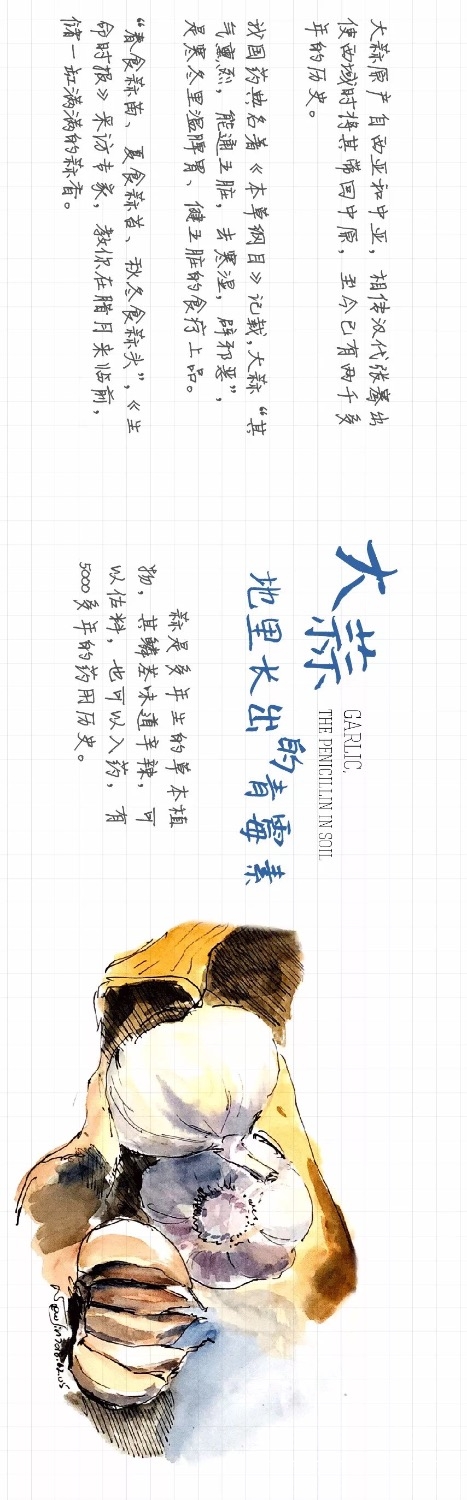 大蒜原产自西亚和中亚，相传汉代张骞出
使西域时将其带回中原，至今已有两千多
年的历史。
我国药典名著《本草纲目》记载，大蒜“其
气熏烈，能通五脏，去寒湿，辟邪恶”，
是寒冬里温脾胃、健五脏的食疗上品。
“春食蒜苗、夏食蒜苔、秋冬食蒜头”，《生
命时报》采访专家，教你在腊月来临前，
储一缸满满的蒜香。
大蒜
GARLIC,
THE PENICILLIN IN SOIL
地里长出的青霉素
蒜是多年生的草本植
物，其鳞茎味道辛辣，可
以佐料，也可以入药，有
5000多年的药用历史。